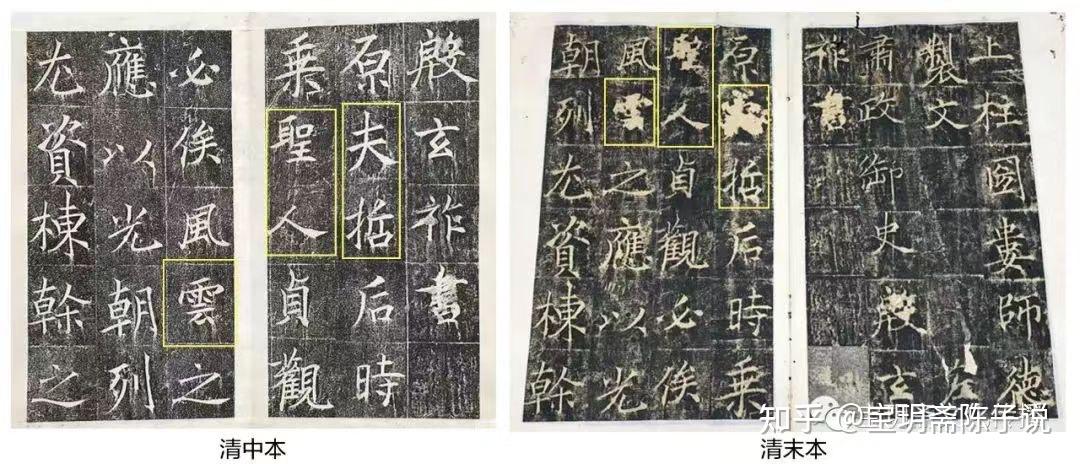 殷玄祚書
原夫哲后時
乗聖人貞觀
必俟風雲之
應以光朝列
尤資棟幹之
清中本
上柱國婁師德
製文 左
肅政御史殷玄
祚書
原夫哲后時乗
聖人貞觀必俟
風雲之應以光
朝列尤資棟幹
清末本
知乎 @宝玥斋陈子说